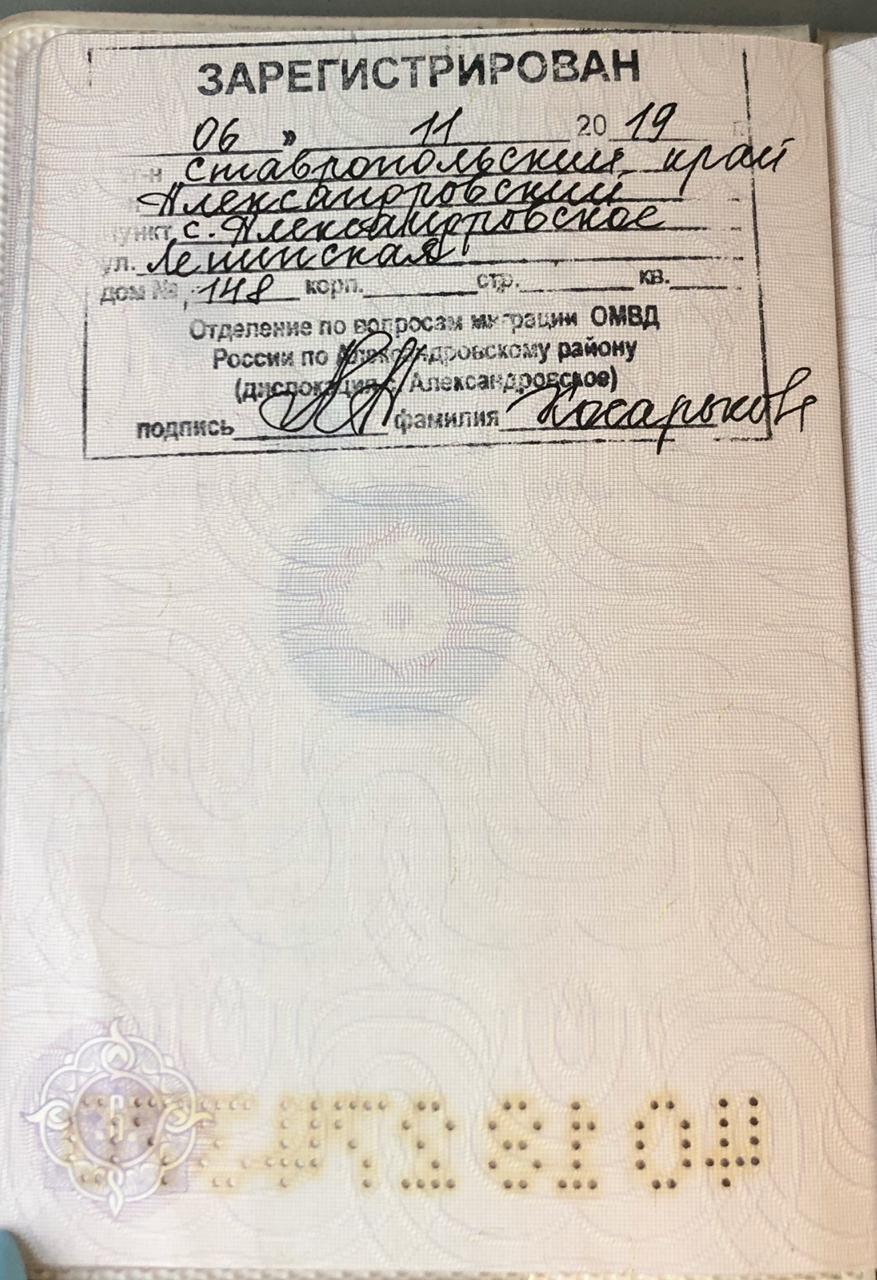 ЗАРЕГИСТРИРОВАН
06 » 11 2019 г.
р-н Ставропольский край
Александровский
пункт с. Александровское
ул. Ленинская
дом № 148 корп. стр. кв.
Отделение по вопросам миграции ОМВД
России по Александровскому району
(дислокация с. Александровское)
подпись фамилия